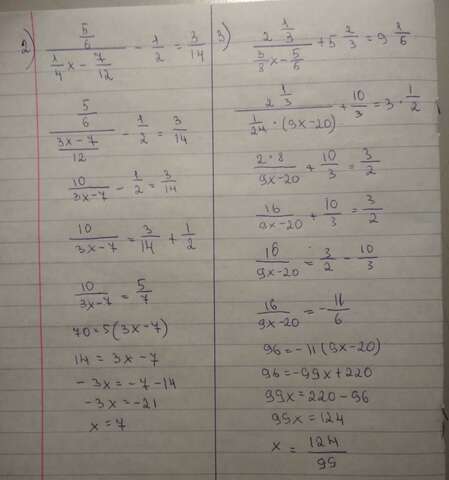 2) (5/6)/(1/4 x - 7/12) - 1/2 = 3/14
(5/6)/((3x-7)/12) - 1/2 = 3/14
10/(3x-7) - 1/2 = 3/14
10/(3x-7) = 3/14 + 1/2
10/(3x-7) = 5/7
70 = 5(3x-7)
14 = 3x - 7
-3x = -7 - 14
-3x = -21
x = 7
3) (2 1/3)/(3/8 x - 5/6) + 5 2/3 = 9 1/6
(2 1/3)/(1/24 · (9x-20)) + 10/3 = 3 · 1/2
(2·8)/(9x-20) + 10/3 = 3/2
16/(9x-20) + 10/3 = 3/2
16/(9x-20) = 3/2 - 10/3
16/(9x-20) = -11/6
96 = -11(9x-20)
96 = -99x + 220
99x = 220 - 96
99x = 124
x = 124/99